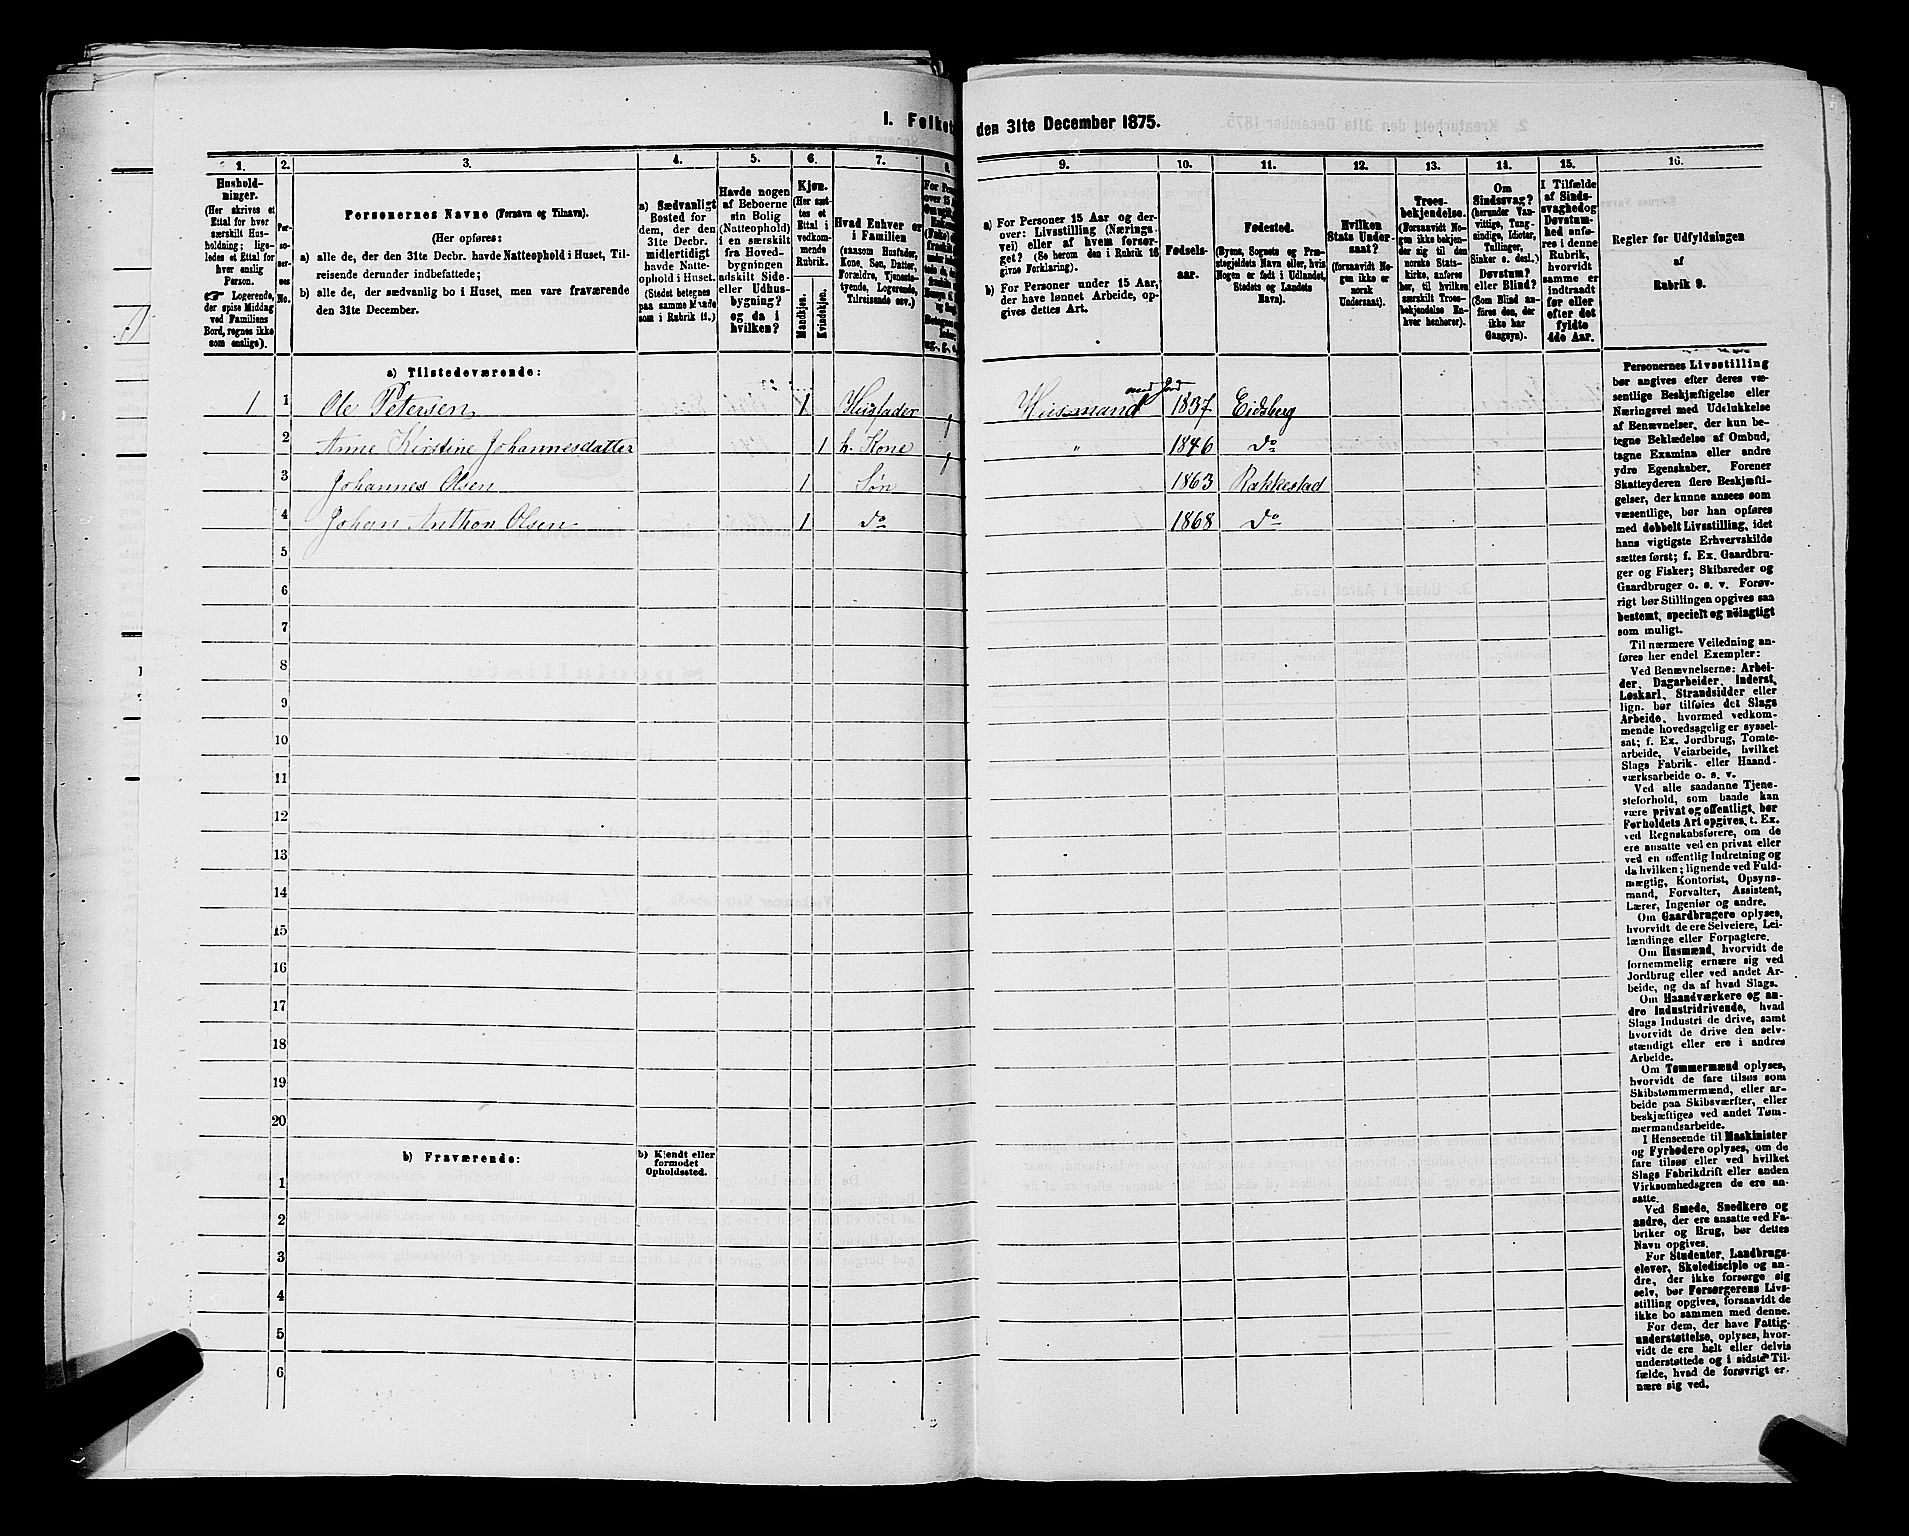 I. Folket
den 31te December 1875.
1.
2.
3.
4.
5.
6.
7.
8.
9.
10.
11.
12.
13.
14.
15.
16.
Hushold-
ninger.
(Her skrives et
Ettal for hver
særskilt Hus-
holdning; lige-
ledes et Ettal for
hver enslig
Person.
☞ Logerende,
der spise Middag
ved Familiens
Bord, regnes ikke
som enslige).
Per-
so-
ner-
nes
No.
Personernes Navne (Fornavn og Tilnavn).
(Her opføres:
a) alle de, der den 31te Decbr. havde Natteophold i Huset, Til-
reisende derunder indbefattede;
b) alle de, der sædvanlig bo i Huset, men vare fraværende
den 31te December.
a) Sædvanligt
Bosted for
dem, der den
31te Decbr.
midlertidigt
havde Natte-
ophold i Huset.
(Stedet betegnes
paa samme Maade
som i Rubrik 11.)
Havde nogen
af Beboerne
sin Bolig
(Natteophold)
i en særskilt
fra Hoved-
bygningen
adskilt Side-
eller Udhus-
bygning?
og da i
hvilken?
Kjøn.
(Her sæt-
tes et
Ettal i
vedkom-
mende
Rubrik.
Mandkjøn.
Kvindekjøn.
Hvad Enhver er
i Familien
(saasom Husfader,
Kone, Søn, Datter,
Forældre, Tjeneste-
tyende, Logerende,
Tilreisende osv.)
a) For Personer 15 Aar og der-
over: Livsstilling (Nærings-
vei) eller af hvem forsør-
get? (Se herom den i Rubrik 16
givne Forklaring).
b) For Personer under 15 Aar,
der have lønnet Arbeide, op-
gives dettes Art.
Fødsels-
aar.
Fødested.
(Byens, Sognets og Præ-
stegjeldets Navn eller, hvis
Nogen er født i Udlandet,
Stedets og Landets
Navn).
Hvilken
Stats Under-
saat?
(forsaavidt No-
gen ikke er
norsk
Undersaat).
Troes-
bekjendelse.
(Forsaavidt No-
gen ikke bekjen-
der sig til den
norske Stats-
kirke, anføres
her, til hvilken
særskilt Troes-
bekjendelse En-
hver henhører).
Om
Sindssvag?
(herunder Van-
vittige, Tung-
sindige, Idioter,
Tullinger,
Sinker o. desl.)
Døvstum?
eller Blind?
(Som Blind an-
føres den, der
ikke har
Gangsyn).
I Tilfælde
af Sinds-
svaghedog
Døvstum-
hed anfø-
res i denne
Rubrik,
hvorvidt
samme er
indtraadt
før eller
efter det
fyldte
4de Aar.
Regler for Udfyldningen
af
Rubrik 9.
a) Tilstedeværende:
1 1 Ole Petersen 1 Husfader Husmand med Jord 1837 Eidsberg
2 Anne Kirstine Johannesdatter 1 h. Kone " 1846 do
3 Johannes Olsen 1 Søn 1863 Rakkestad
4 Johan Anthon Olsen 1 do 1868 do
5
6
7
8
9
10
11
12
13
14
15
16
17
18
19
20
b) Fraværende:
b) Kjendt eller
formodet
Opholdssted.
1
2
3
4
5
6
Personernes Livsstilling
bør angives efter deres væ-
sentlige Beskjæftigelse eller
Næringsvei med Udelukkelse
af Benævnelser, der kun be-
tegne Beklædelse af Ombud,
tagne Examina eller andre
ydre Egenskaber. Forener
Skatteyderen flere Beskjæfti-
gelser, der kunne ansees som
væsentlige, bør han opføres
med dobbelt Livsstilling, idet
hans vigtigste Erhvervskilde
sættes først; f. Ex. Gaardbru-
ger og Fisker; Skibsreder og
Gaardbruger o. s. v. Forøv-
rigt bør Stillingen opgives saa
bestemt, specielt og nøiagtigt
som muligt.
Til nærmere Veiledning an-
føres her endel Exempler:
Ved Benævnelserne: Arbei-
der, Dagarbeider, Inderst,
Løskarl, Strandsidder eller
lign. bør tilføies det Slags
Arbeide, hvormed vedkom-
mende hovedsagelig er syssel-
sat; f. Ex. Jordbrug, Tomte-
arbeide, Veiarbeide, hvilket
Slags Fabrik- eller Haand-
værksarbeide o. s. v.
Ved alle saadanne Tjene-
steforhold, som baade kan
være privat og offentligt, bør
Forholdets Art opgives, t. Ex.
ved Regnskabsførere, om de
ere ansatte ved en privat eller
ved en offentlig Indretning og
da hvilken; lignende ved Fuld-
mægtig, Kontorist, Opsyns-
mand, Forvalter, Assistent,
Lærer, Ingeniør og andre.
Om Gaardbrugere oplyses,
hvorvidt de ere Selveiere, Lei-
lændinge eller Forpagtere.
Om Husmænd, hvorvidt de
fornemmelig ernære sig ved
Jordbrug eller ved andet Ar-
beide, og da af hvad Slags.
Om Haandværkere og an-
dre Industridrivende, hvad
Slags Industri de drive, samt
hvorvidt de drive den selv-
stændigt eller ere i andres
Arbeide.
Om Tømmermænd oplyses,
hvorvidt de fare tilsøs som
Skibstømmermænd, eller ar-
beide paa Skibsværfter, eller
beskjæftiges ved andet Tøm-
mermandsarbeide.
I Henseende til Maskinister
og Fyrbødere oplyses, om de
fare tilsøs eller ved hvilket
Slags Fabrikdrift eller anden
Virksomhedsgren de ere an-
satte.
Ved Smede, Snedkere og
andre, der ere ansatte ved Fa-
briker og Brug, bør dettes
Navn opgives.
For Studenter, Landbrugs-
elever, Skoledisciple og an-
dre, der ikke forsørge sig
selv, bør Forsørgerens Livs-
stilling opgives, forsaavidt de
ikke bo sammen med denne.
For dem, der have Fattig-
understøttelse, oplyses, hvor-
vidt de ere helt eller delvis
understøttede og i sidste Til-
fælde, hvad de forøvrigt er-
nære sig ved.